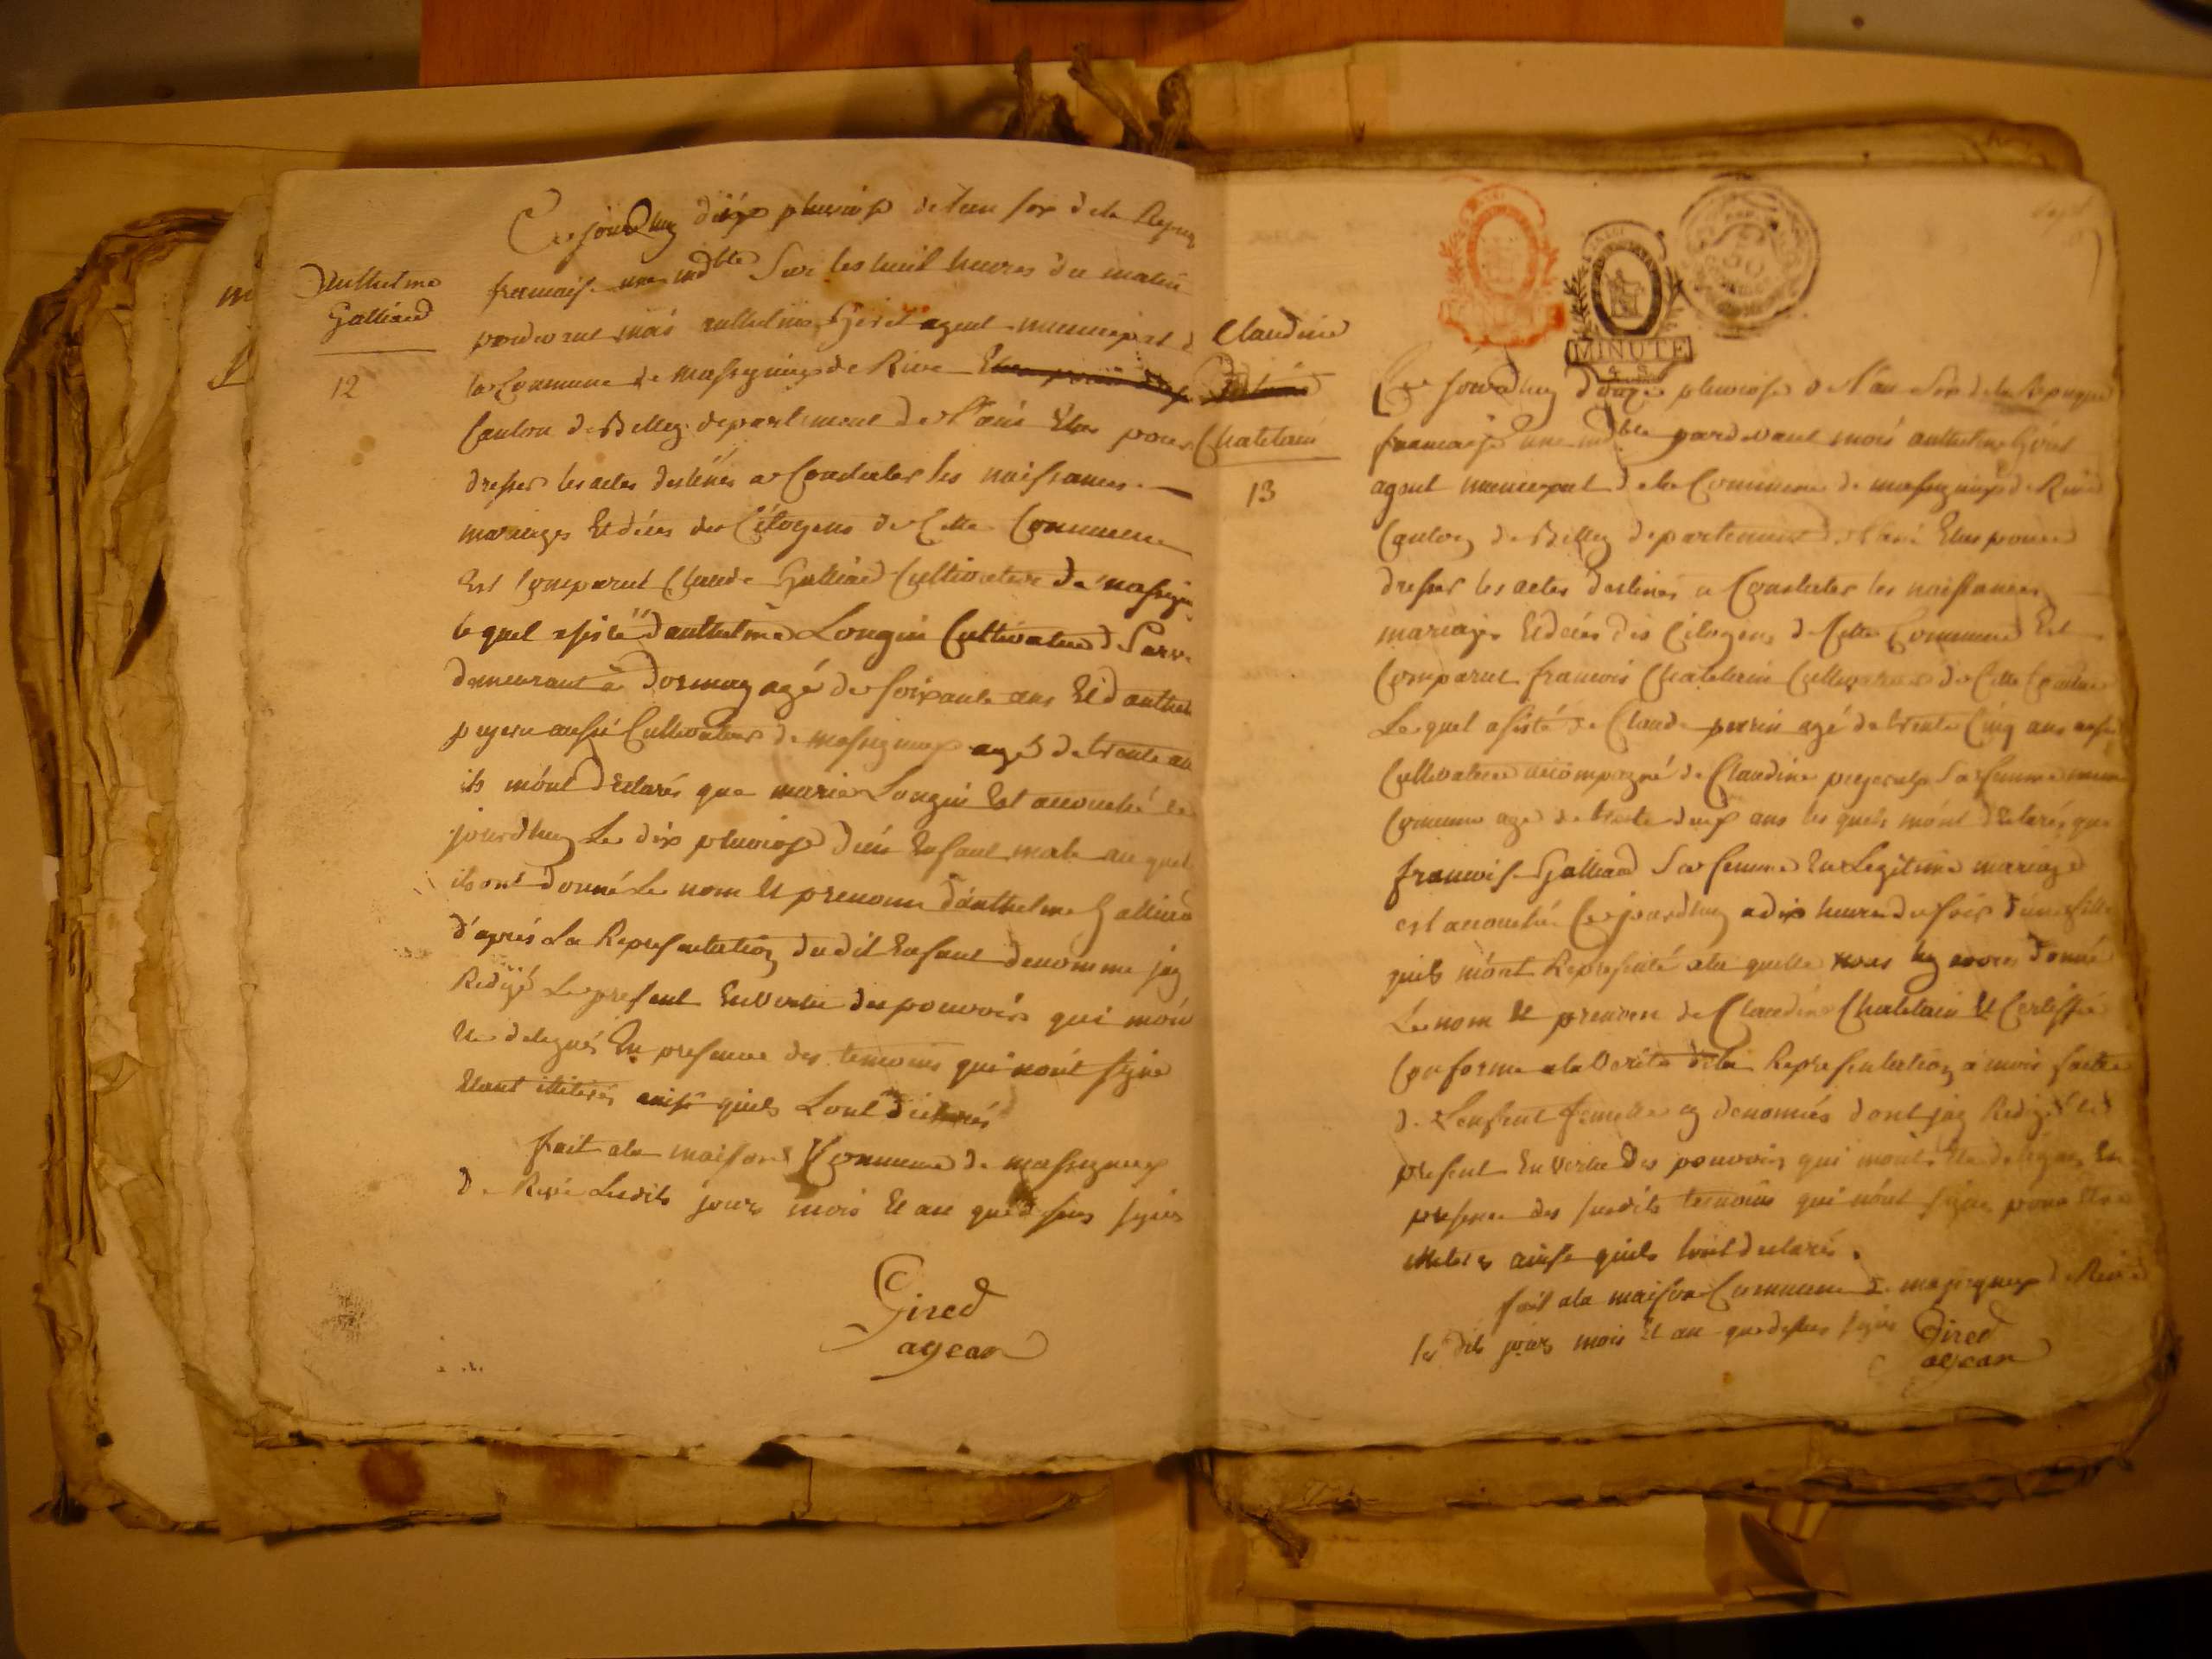 Anthelme
Galliard
12
Ce jourdhuy dixe pluviose de l'an six de la Repuq
francaise une indble Sur les huit heures du matin
pardevant moi anthelme Giret agent municipal d
la Commune de Massignieux de Rive
Canton de Belley departement de l'ain Elu pour
dresser les actes destinés a Constater les naissances
mariages Et décés des Citoyens de Cette Commune
Est Comparut Claude Galliard Cultivateur de massign
le quel assisté d'anthelme Longin Cultivateur de Parve
demeurant a agé de soixante ans Et d'anthel
peysson aussi Cultivateur de massignieux agé de trente an
ils m'ont déclarés que marie Longin Est accouché ce
jourdhuy Le dix pluviose d'un Enfant male au quel
ils ont donné Le nom Et prenom d'anthelme Galliard
d'aprés La Representation du dit Enfant denommé jay
Redigé Le present En vertu des pouvoirs qui m'on
Eté delegués En presence des temoins qui n'ont signé
Etant illiterés ainsi quils Lont déclarés
fait ala maison Commune de massignieux
de Rive Lesdits jours mois Et an que dessus signés
Gired
agean
Claudine
Chatelain
13
MINUTE
Ce jourdhuy douze pluviose de l'an six de la Repuque
francaise une indble pardevant moi anthelme Giret
agent municipal de la Commune de massignieux de Rive
Canton de Belley departement de l'ain Elu pour
dresser les actes destinés a Constater les naissances
mariages Et décés des Citoyens de Cette Commune Est
Comparut francois Chatelain Cultivateur de Cette Commune
Le quel assisté de Claude perrin agé de trente Cinq ans aussi
Cultivateur accompagné de Claudine sa femme meme
Commune agé de trente deux ans les quels m'ont déclarés que
francoise Galliard Sa femme En Legitime mariage
est accouchée Ce jourdhuy a dix heure du soir d'une fille
quils m'ont Representé ala quelle nous luy avons donné
Le nom Et prenom de Claudine Chatelain Et Certiffié
Conforme ala Verité de la Representation a moi faitte
de L'enfent femelle cy denommés dont jay Redigé le
present En vertu des pouvoirs qui mont Eté delegués En
presence des susdits temoins qui n'ont signés pour Etre
illeterés ainsi quils lont déclarés.
fait ala maison Commune de massignieux de Rive
les dits jours mois Et an que dessus signé Gired
agean